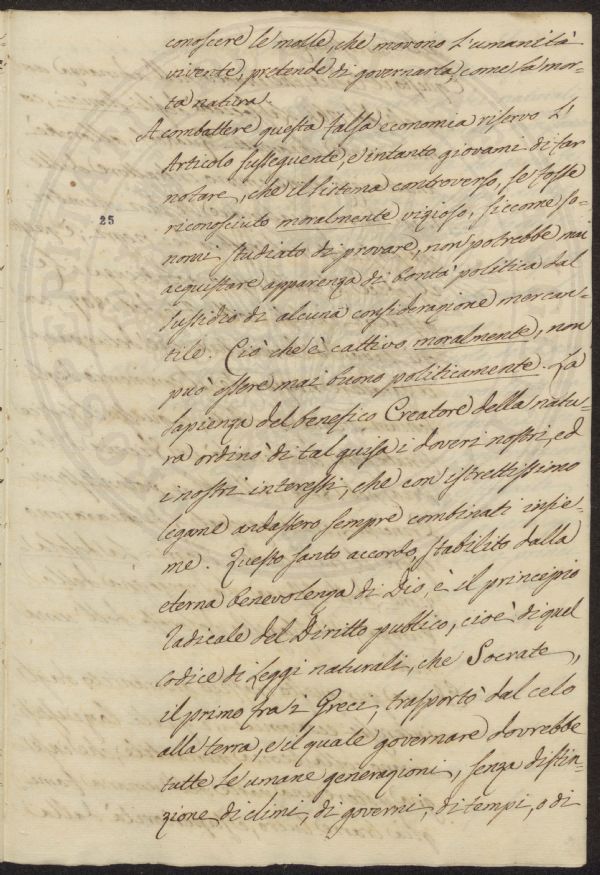 conoscere le molle, che movono l'umanità
vivente, pretende di governarla come la mor-
ta natura.
A combattere questa falsa economia riservo l'
Articolo susseguente, e intanto giovami di far
notare, che il sistema controverso, se fosse
25
riconosciuto moralmente vizioso, siccome so-
nomi studiato di provare, non potrebbe mai
acquistare apparenza di bontà politica dal
sussidio di alcuna considerazione mercan-
tile. Ciò che è cattivo moralmente, non
può essere mai buono politicamente. La
sapienza del benefico Creatore della natu-
ra ordinò di tal guisa i doveri nostri, ed
i nostri interessi, che con istrettissimo
legame andassero sempre combinati insie-
me. Questo santo accordo, stabilito dalla
eterna benevolenza di Dio, è il principio
radicale del Diritto publico, cioè di quel
codice di Leggi naturali, che Socrate,
il primo fra i Greci, trasportò dal celo
alla terra, e il quale governare dovrebbe
tutte le umane generazioni, senza distin-
zione di climi, di governi, di tempi, o di